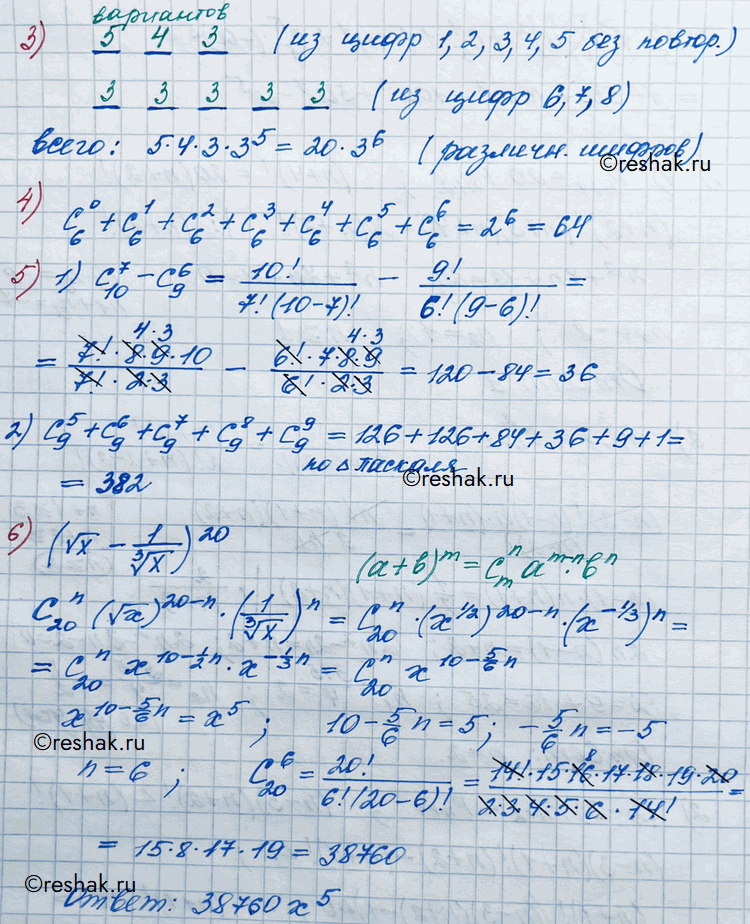 вариантов
3) 5 4 3 (из цифр 1, 2, 3, 4, 5 без повтор.)
3 3 3 3 3 (из цифр 6, 7, 8)
всего: 5·4·3·3⁵ = 20·3⁶ (различн. шифров)
©reshak.ru
4)
C₆⁰ + C₆¹ + C₆² + C₆³ + C₆⁴ + C₆⁵ + C₆⁶ = 2⁶ = 64
5) 1) C₁₀⁷ − C₉⁶ = 10!/(7!(10−7)!) − 9!/(6!(9−6)!) =
4·3 4·3
= (7!·8·9·10)/(7!·2·3) − (6!·7·8·9)/(6!·2·3) = 120 − 84 = 36
2) C₉⁵ + C₉⁶ + C₉⁷ + C₉⁸ + C₉⁹ = 126 + 126 + 84 + 36 + 9 + 1 =
по △ Паскаля
©reshak.ru
= 382
6) (√x − 1/∛x)²⁰
(a+b)ᵐ = Cₘⁿ aᵐ⁻ⁿ·bⁿ
C₂₀ⁿ (√x)²⁰⁻ⁿ · (1/∛x)ⁿ = C₂₀ⁿ · (x^{1/2})²⁰⁻ⁿ · (x^{−1/3})ⁿ =
= C₂₀ⁿ x^{10−½n} · x^{−⅓n} = C₂₀ⁿ x^{10−5/6n}
x^{10−5/6n} = x⁵ ; 10 − 5/6n = 5; −5/6n = −5
©reshak.ru
8
n = 6 ; C₂₀⁶ = 20!/(6!(20−6)!) = (14!·15·16·17·18·19·20)/(2·3·4·5·6·14!) =
= 15·8·17·19 = 38760
©reshak.ru
Ответ: 38760 x⁵